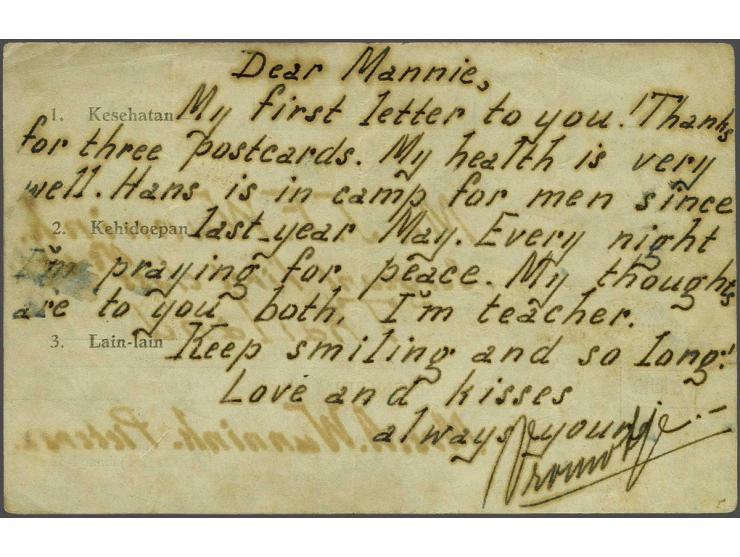 Dear Mannie,
1. Kesehatan My first letter to you! Thanks
for three postcards. My health is very
well. Hans is in camp for men since
2. Kehidoepan last year May. Every night
I'm praying for peace. My thoughts
are to you both. I'm teacher.
3. Lain-lain Keep smiling and so long!
Love and kisses
always your